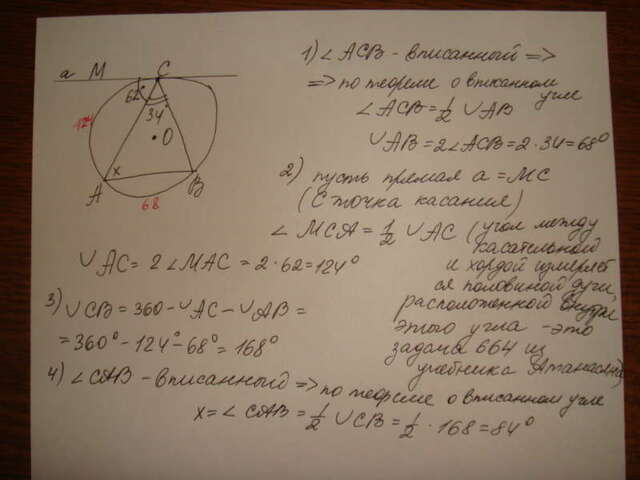 a M C
62°
34°
124
O
x
A B
68
1) ∠ACB - вписанный =>
=> по теореме о вписанном
угле
∠ACB = 1/2 ∪AB
∪AB = 2∠ACB = 2·34 = 68°
2) пусть прямая a = MC
(C точка касания)
∠MCA = 1/2 ∪AC (угол между
касательной
и хордой измеряет
ся половиной дуги,
расположенной внутри
этого угла - это
задача 664 из
учебника Атанасяна)
∪AC = 2∠MAC = 2·62 = 124°
3) ∪CB = 360 - ∪AC - ∪AB =
= 360° - 124° - 68° = 168°
4) ∠CAB - вписанный => по теореме о вписанном угле
x = ∠CAB = 1/2 ∪CB = 1/2 · 168 = 84°